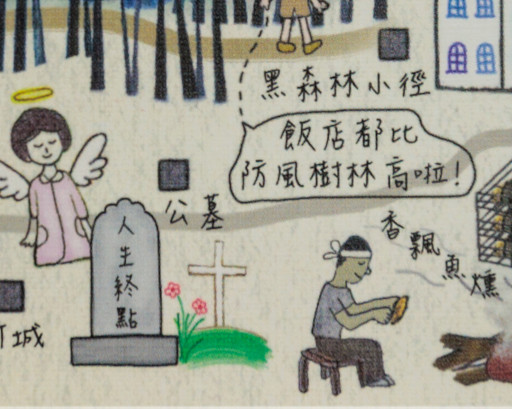 黑森林小徑
飯店都比
防風樹林高啦!
公墓
人生終點
香飄魚燻
城